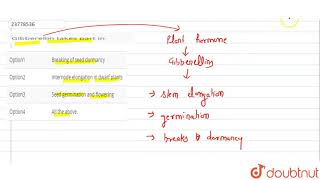 23778536
Gibberellin takes part in
Option1 Breaking of seed dormancy
Option2 Internode elongation in dwarf plants
Option3 Seed germination and flowering
Option4 All the above.
Plant hormone
Gibberellins
→ stem elongation
→ germination
→ breaks dormancy
doubtnut